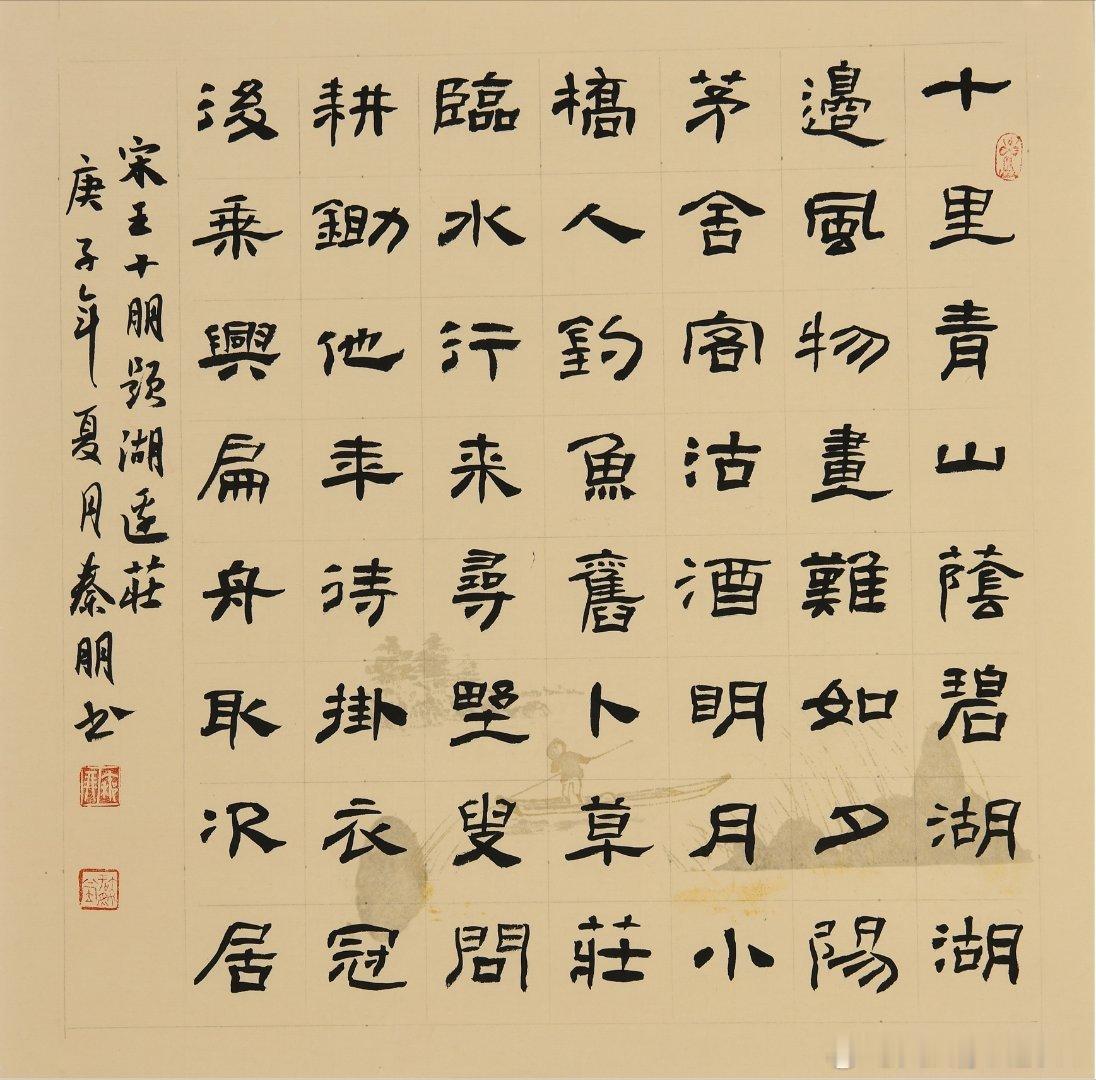 十里青山蔭碧湖湖
邊風物畫難如夕陽
茅舍客沽酒明月小
橋人釣魚舊卜草莊
臨水行来尋野叟問
耕鋤他年待掛衣冠
後乘興扁舟取次居
宋王十朋題湖邊莊
庚子年夏月秦朋书